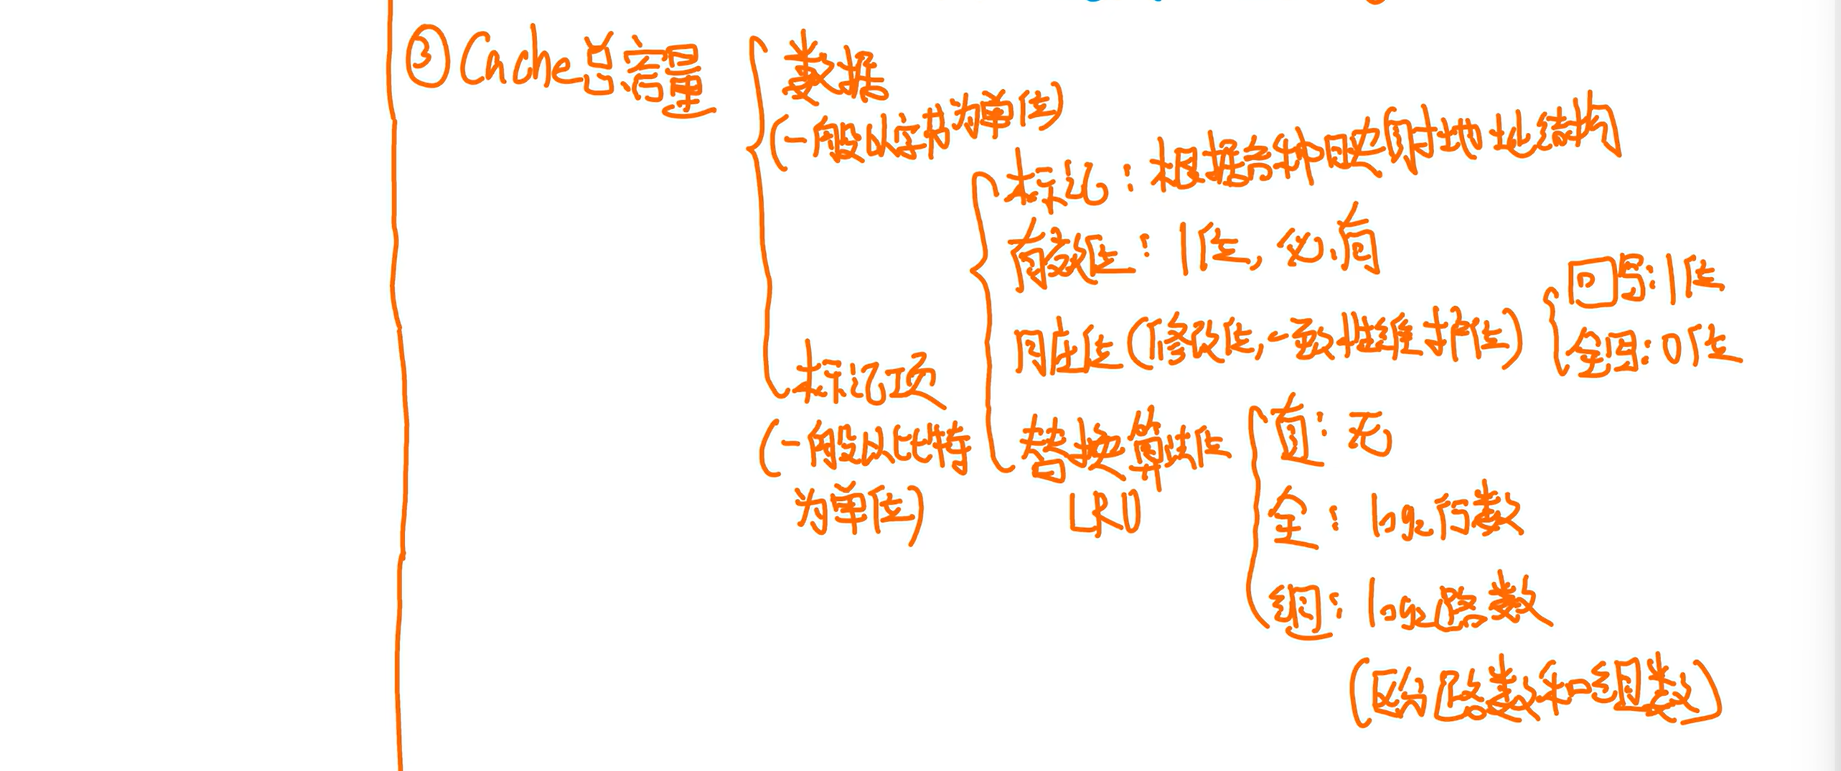 ③Cache总容量
数据
(一般以字节为单位)
标记项
(一般以比特
为单位)
标记:根据各种映射地址结构
有效位:1位,必有
脏位(修改位,一致性维护位)
回写:1位
全写:0位
替换算法位
LRU
直:无
全:log₂行数
组:log₂路数
(区分路数和组数)